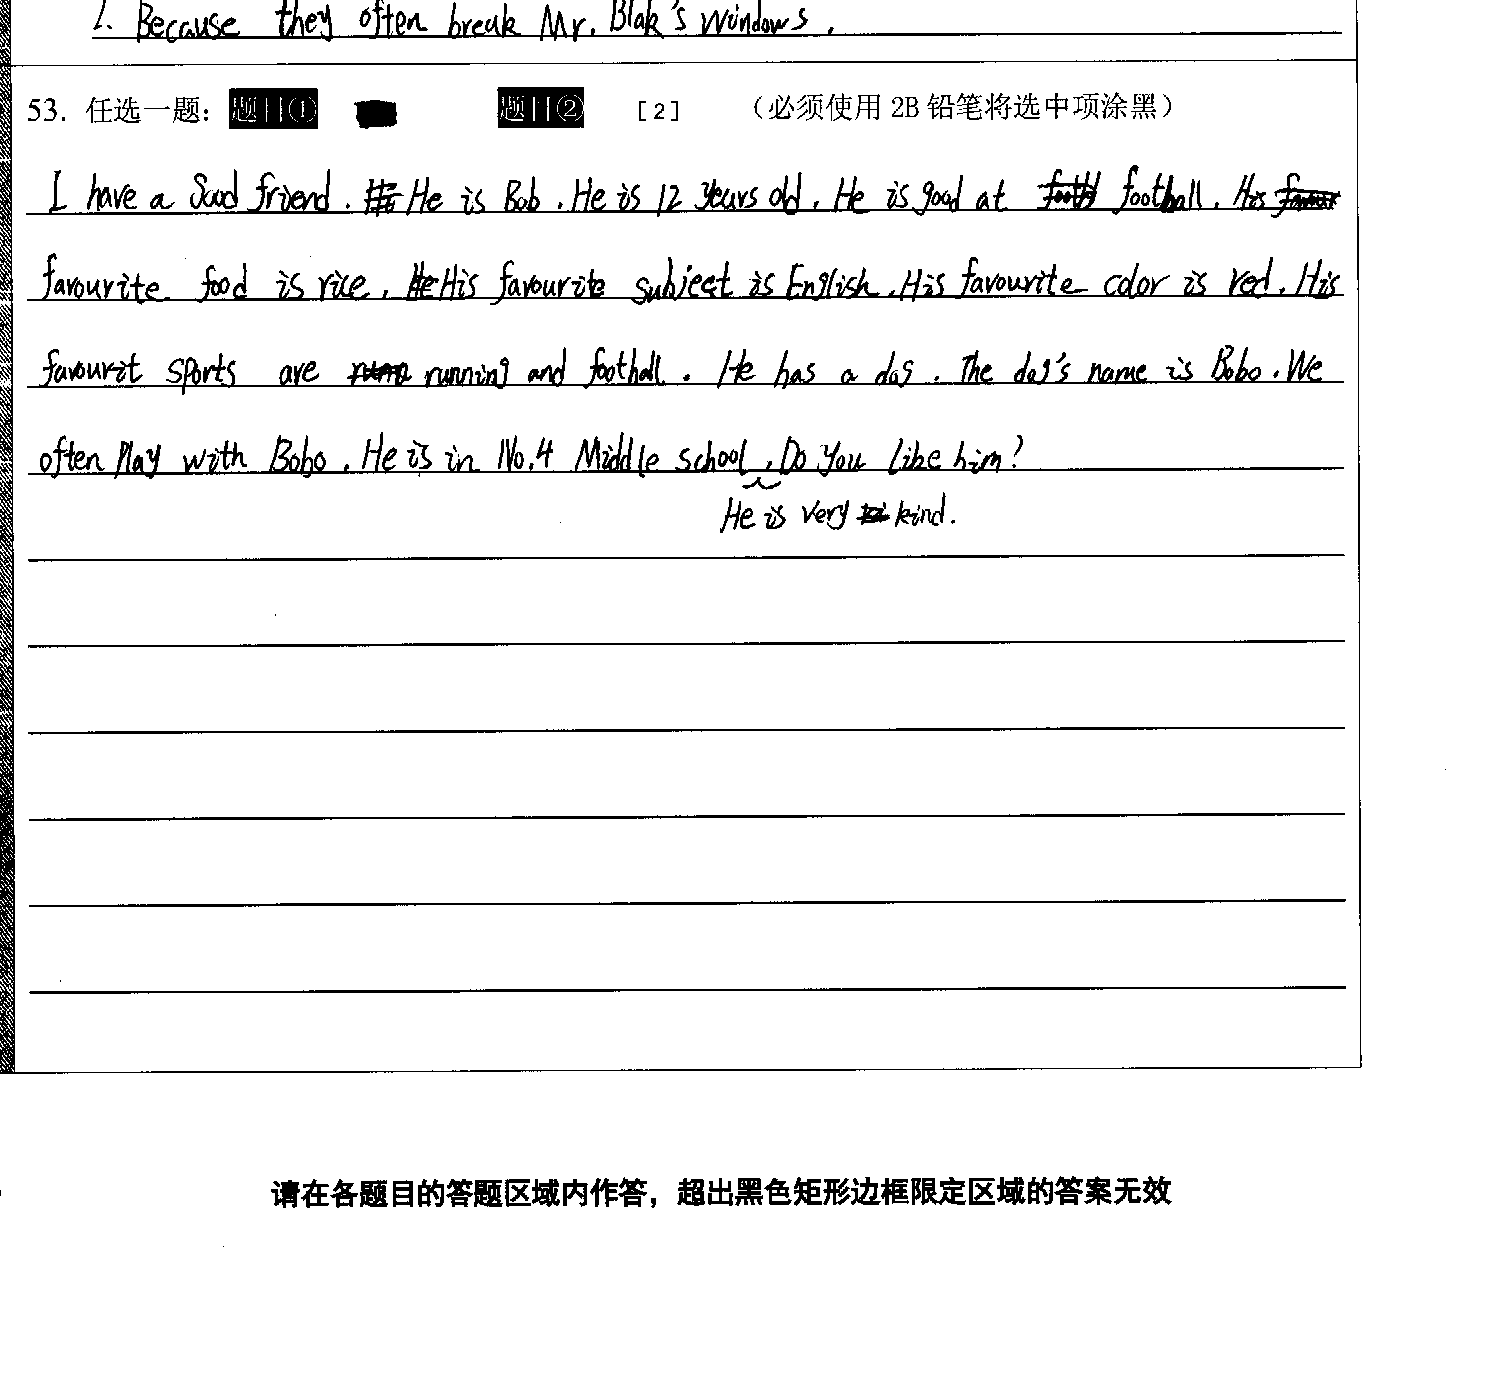 2. Because they often break Mr. Blak's windows.
53. 任选一题: 题目① 题目② [2] (必须使用 2B 铅笔将选中项涂黑)
I have a Good friend. He is Bob. He is 12 years old. He is good at football. His
favourite food is rice. His favourite subject is English. His favourite color is red. His
favourit sports are running and football. He has a dog. The dog's name is Bobo. We
often Play with Bobo. He is in No.4 Middle school. Do you like him?
He is very kind.
请在各题目的答题区域内作答，超出黑色矩形边框限定区域的答案无效